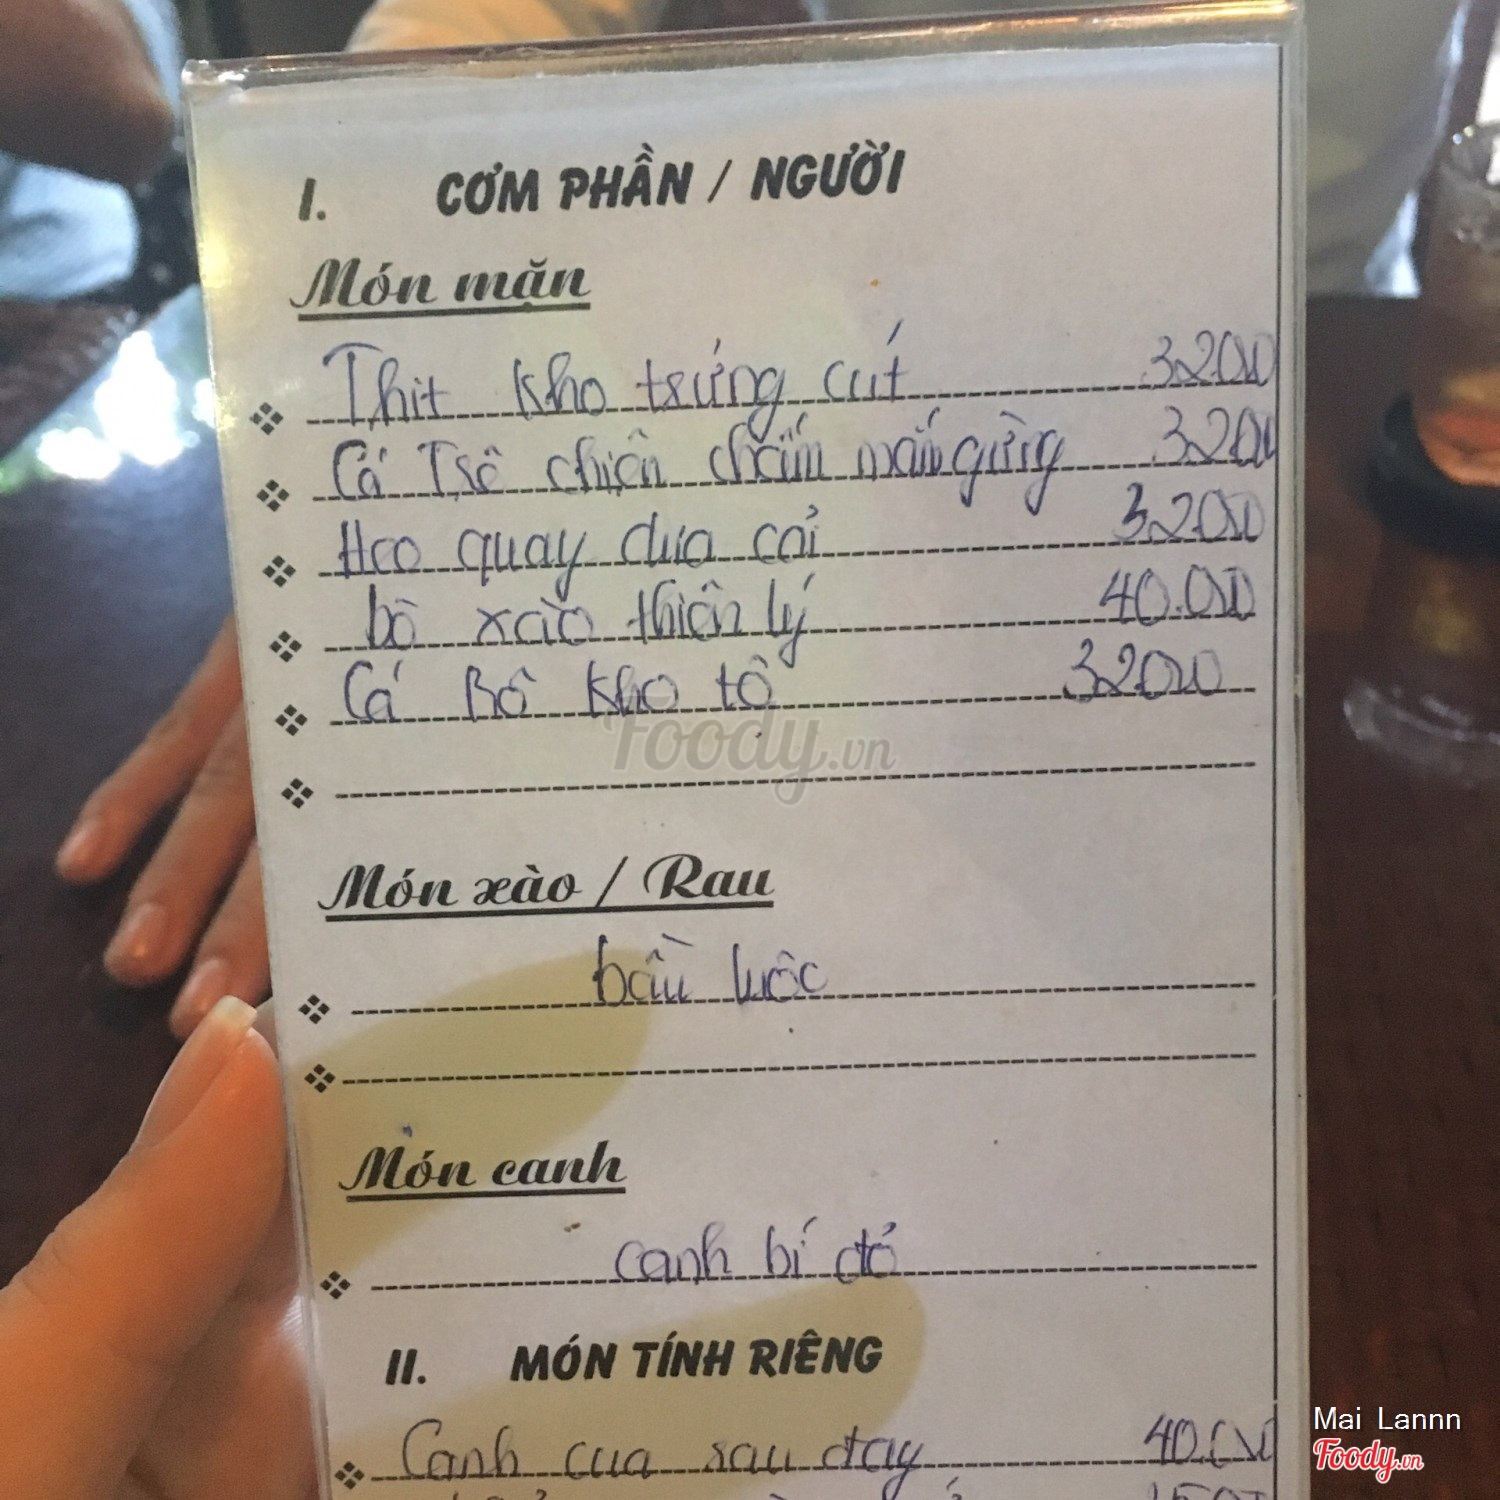 I. CƠM PHẦN / NGƯỜI
Món mặn
Thịt kho trứng cút 32000
Cá Trê chiên chấm mắm gừng 3200
Heo quay dưa cải 32000
bò xào thiên lý 40.000
Cá Rô kho tộ 32000
Foody.vn
Món xào / Rau
bầu luộc
Món canh
canh bí đỏ
II. MÓN TÍNH RIÊNG
Canh cua rau đay 40.000
Mai Lannn
Foody.vn